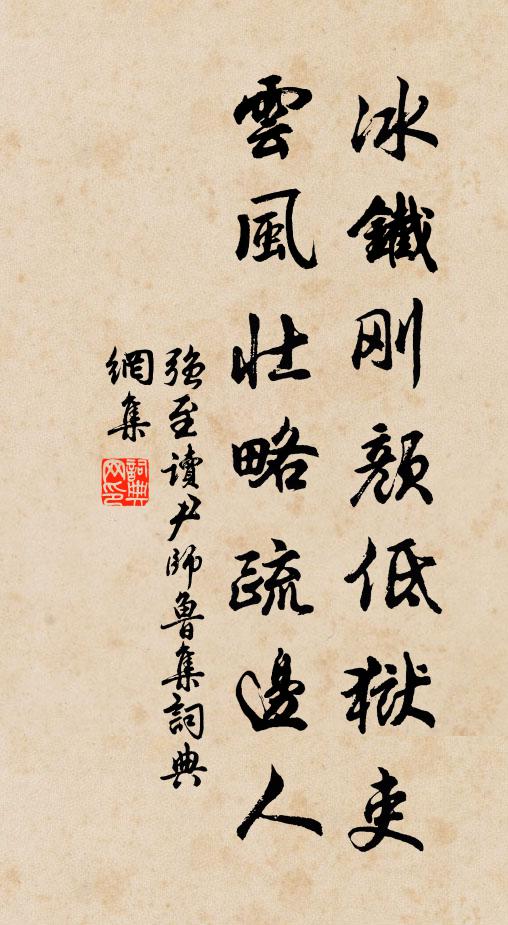 冰鐵刚顏低獄吏
雲風壯略疏邊人
強至讀尹師魯集詞典
網集
詞典
网印